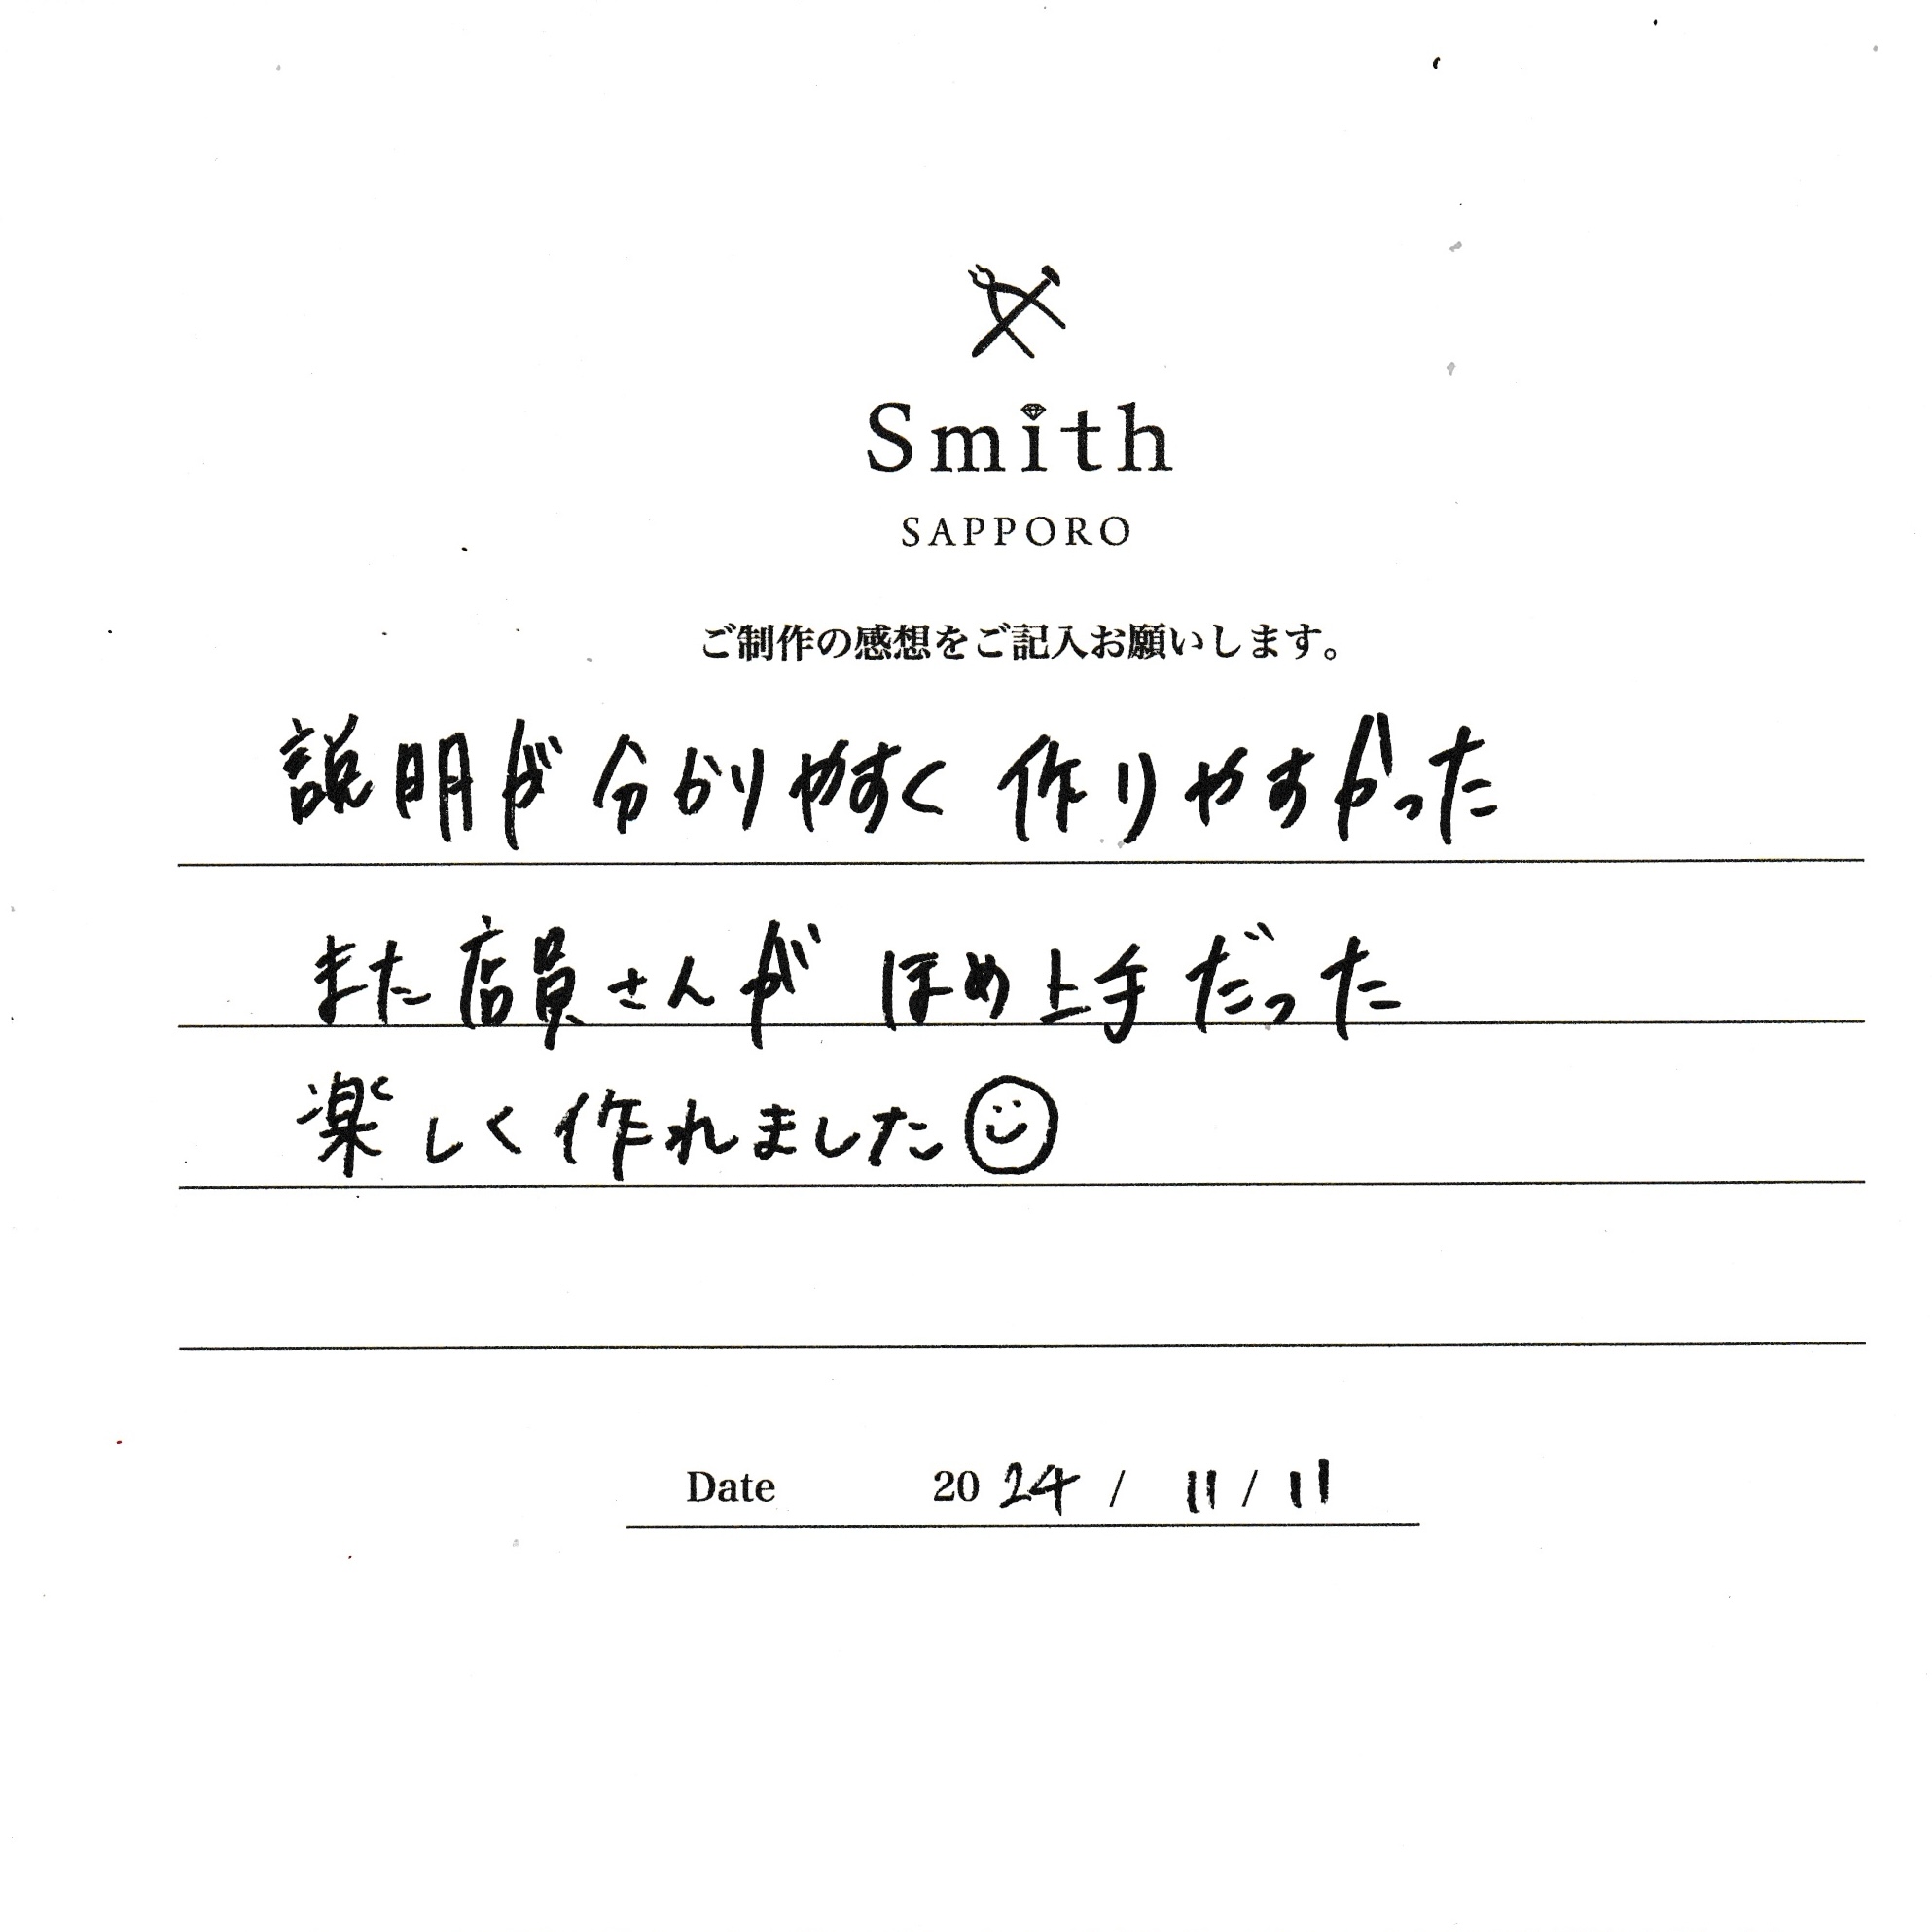 Smith
SAPPORO
ご制作の感想をご記入お願いします。
説明が分かりやすく 作りやすかった
また店員さんが ほめ上手だった
楽しく作れました
Date 2024 / 11 / 11